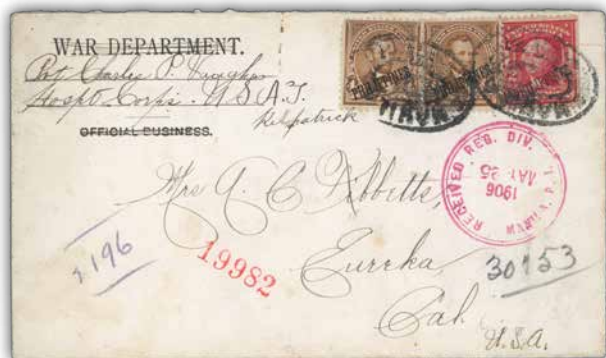 WAR DEPARTMENT.
Pvt Charles P. Vaughn
Hospt Corps. U.S.A.T.
Kilpatrick
OFFICIAL BUSINESS.
PHILIPPINES
RECEIVED REG. DIV.
MAY 25
1906
MANILA, P. I.
Mrs A. C. Tibbitts,
Eureka,
Cal.
U.S.A.
19982
30153